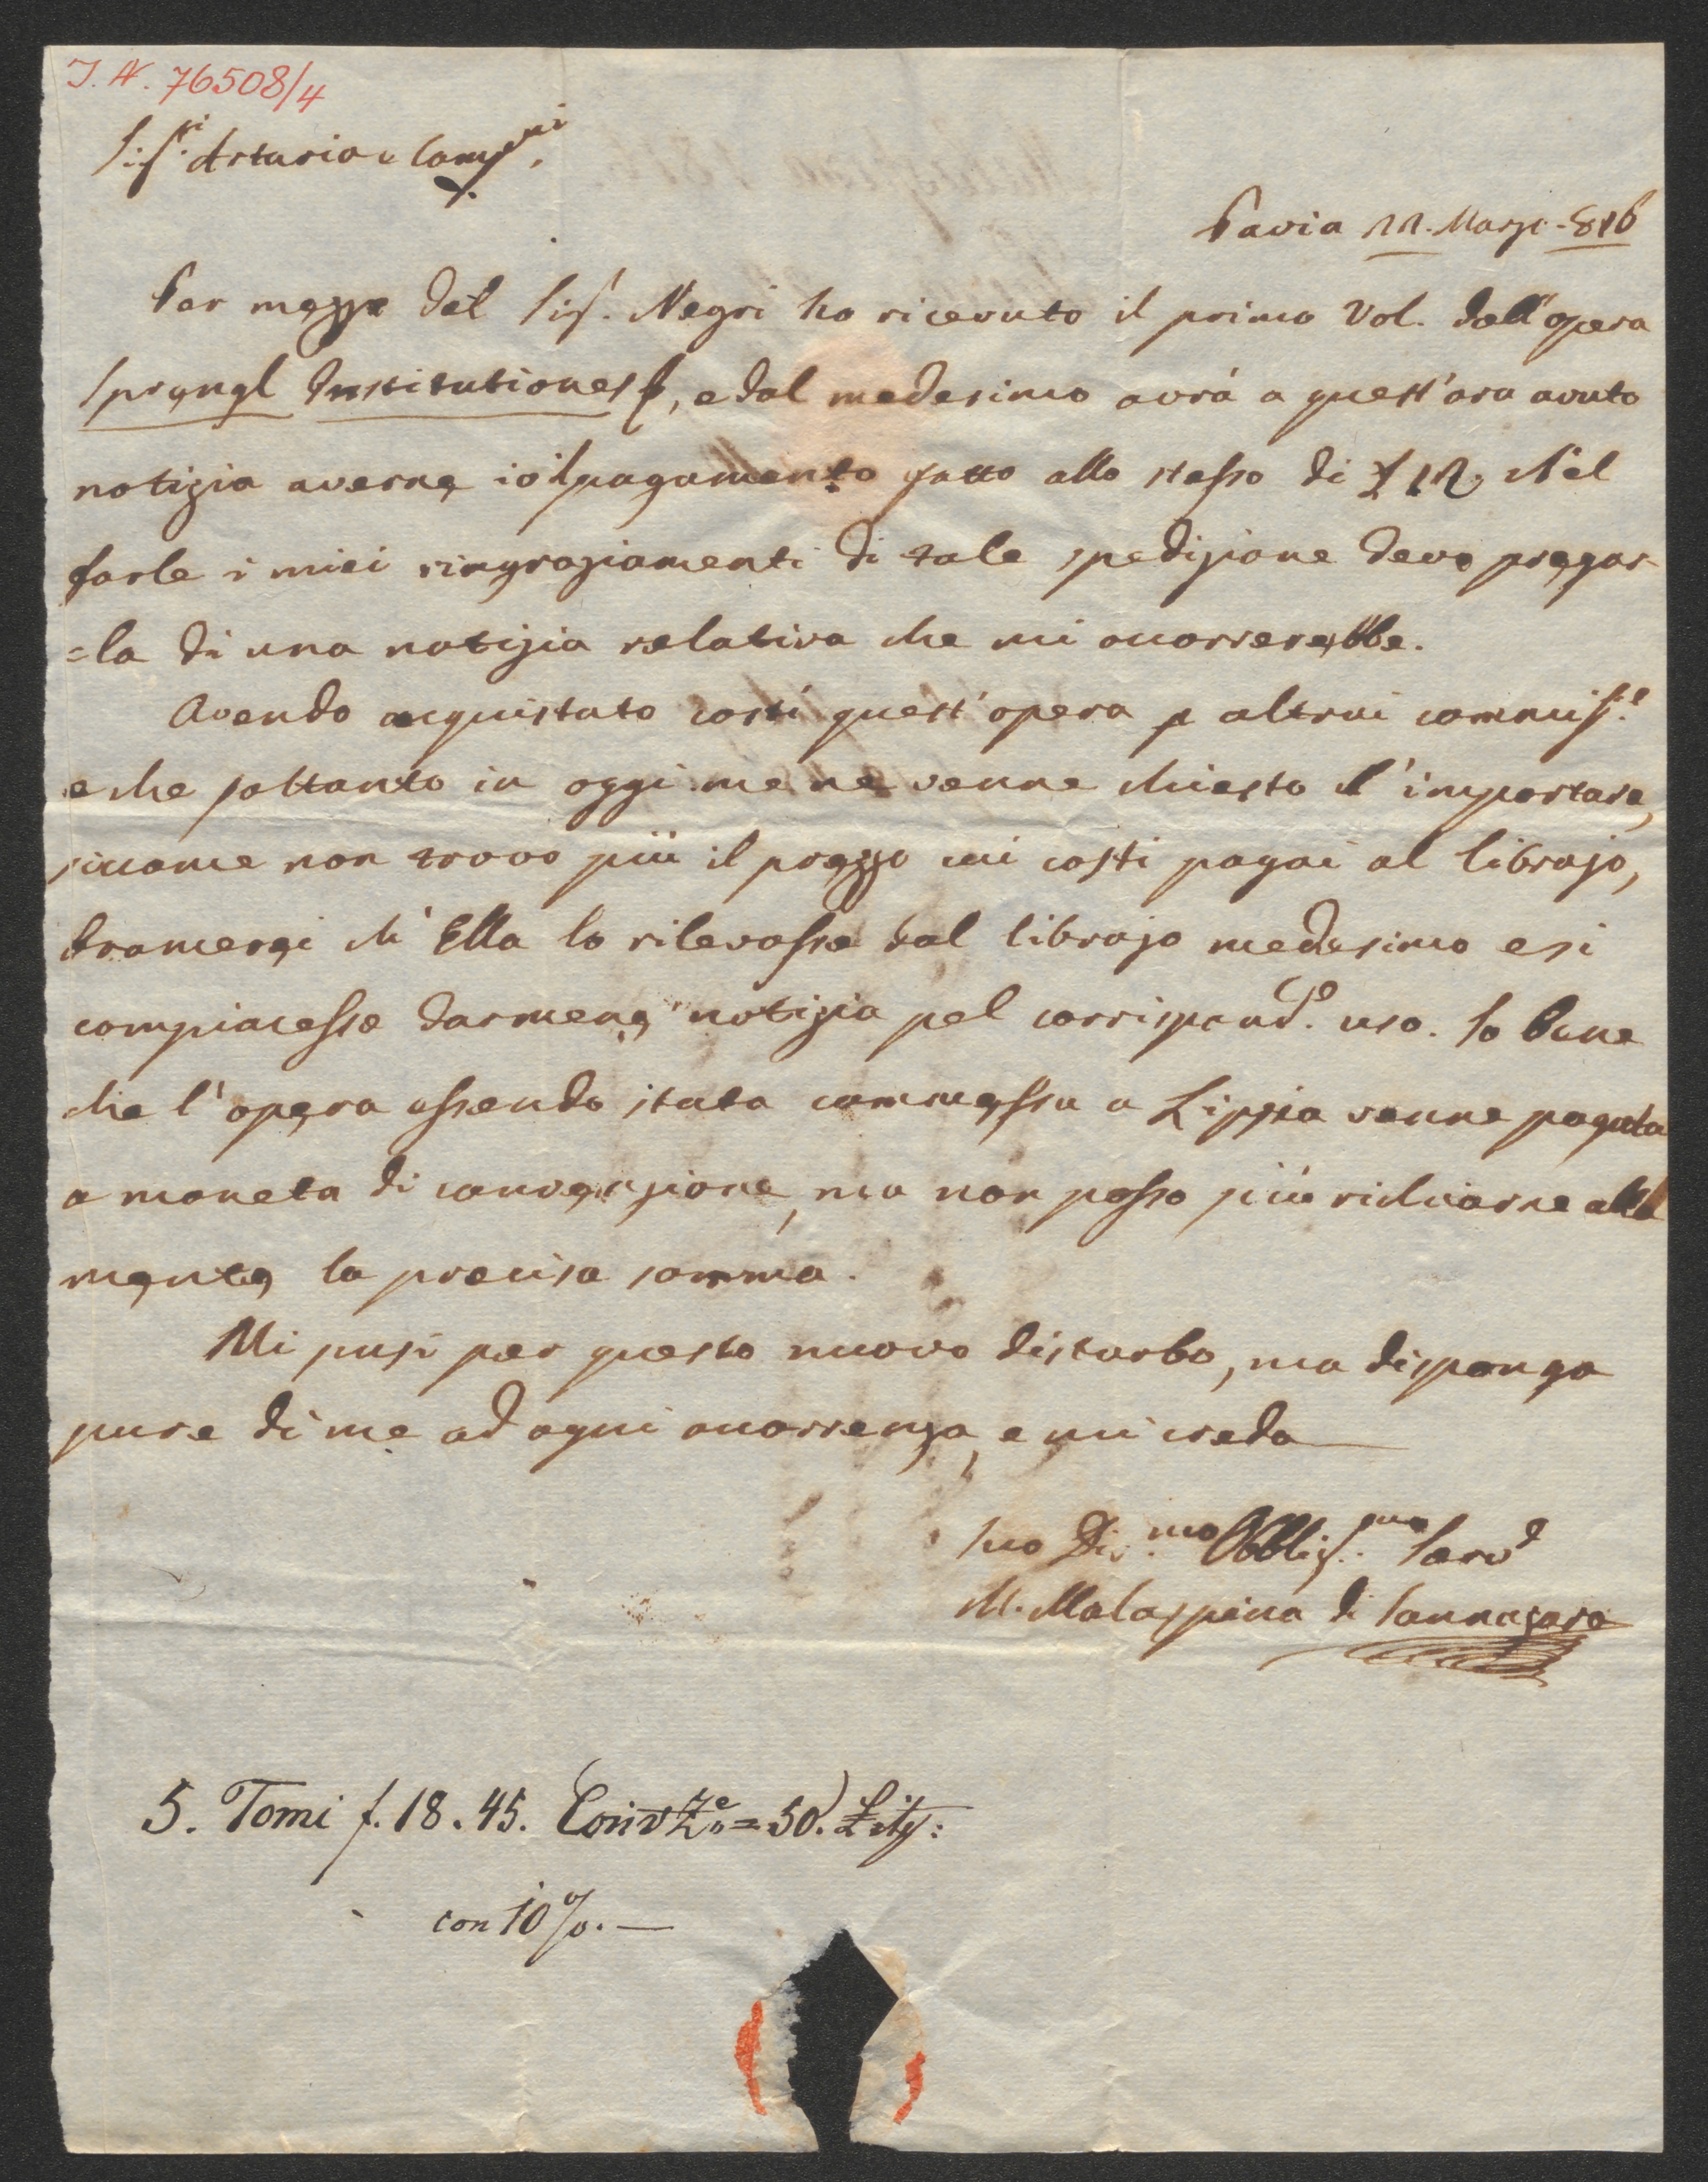 I. N. 76508/4
Sig.ri Artaria e Comp.ni
Pavia 22. Marzo. 816
Per mezzo del Sig. Negri ho ricevuto il primo Vol. dell'opera
Sprengl Institutiones, e dal medesimo avrà a quest'ora avuto
notizia averne io il pagamento fatto allo stesso di £ 12. Nel
farle i miei ringraziamenti di tale spedizione devo pregar-
=la di una notizia relativa che mi occorrerebbe.
Avendo acquistato costì quest'opera p altrui commis.e
e che soltanto in oggi me ne venne chiesto l'importare,
siccome non trovo più il prezzo cui costì pagai al librajo,
bramerei ch'Ella lo rilevasse dal librajo medesimo e si
compiacesse darmene notizia pel corrispond.e uso. So bene
che l'opera essendo stata commessa a Lipsia venne pagata
a moneta di convenzione, ma non posso più richiamarne alla
mente la precisa somma.
Mi scusi per questo nuovo disturbo, ma disponga
pure di me ad ogni occorrenza, e mi creda
Suo Di.mo Obblig.mo Serv.e
M. Malaspina di Sannazaro
5. Tomi f. 18. 45. Conv Ze = 50. £
con 10%. —